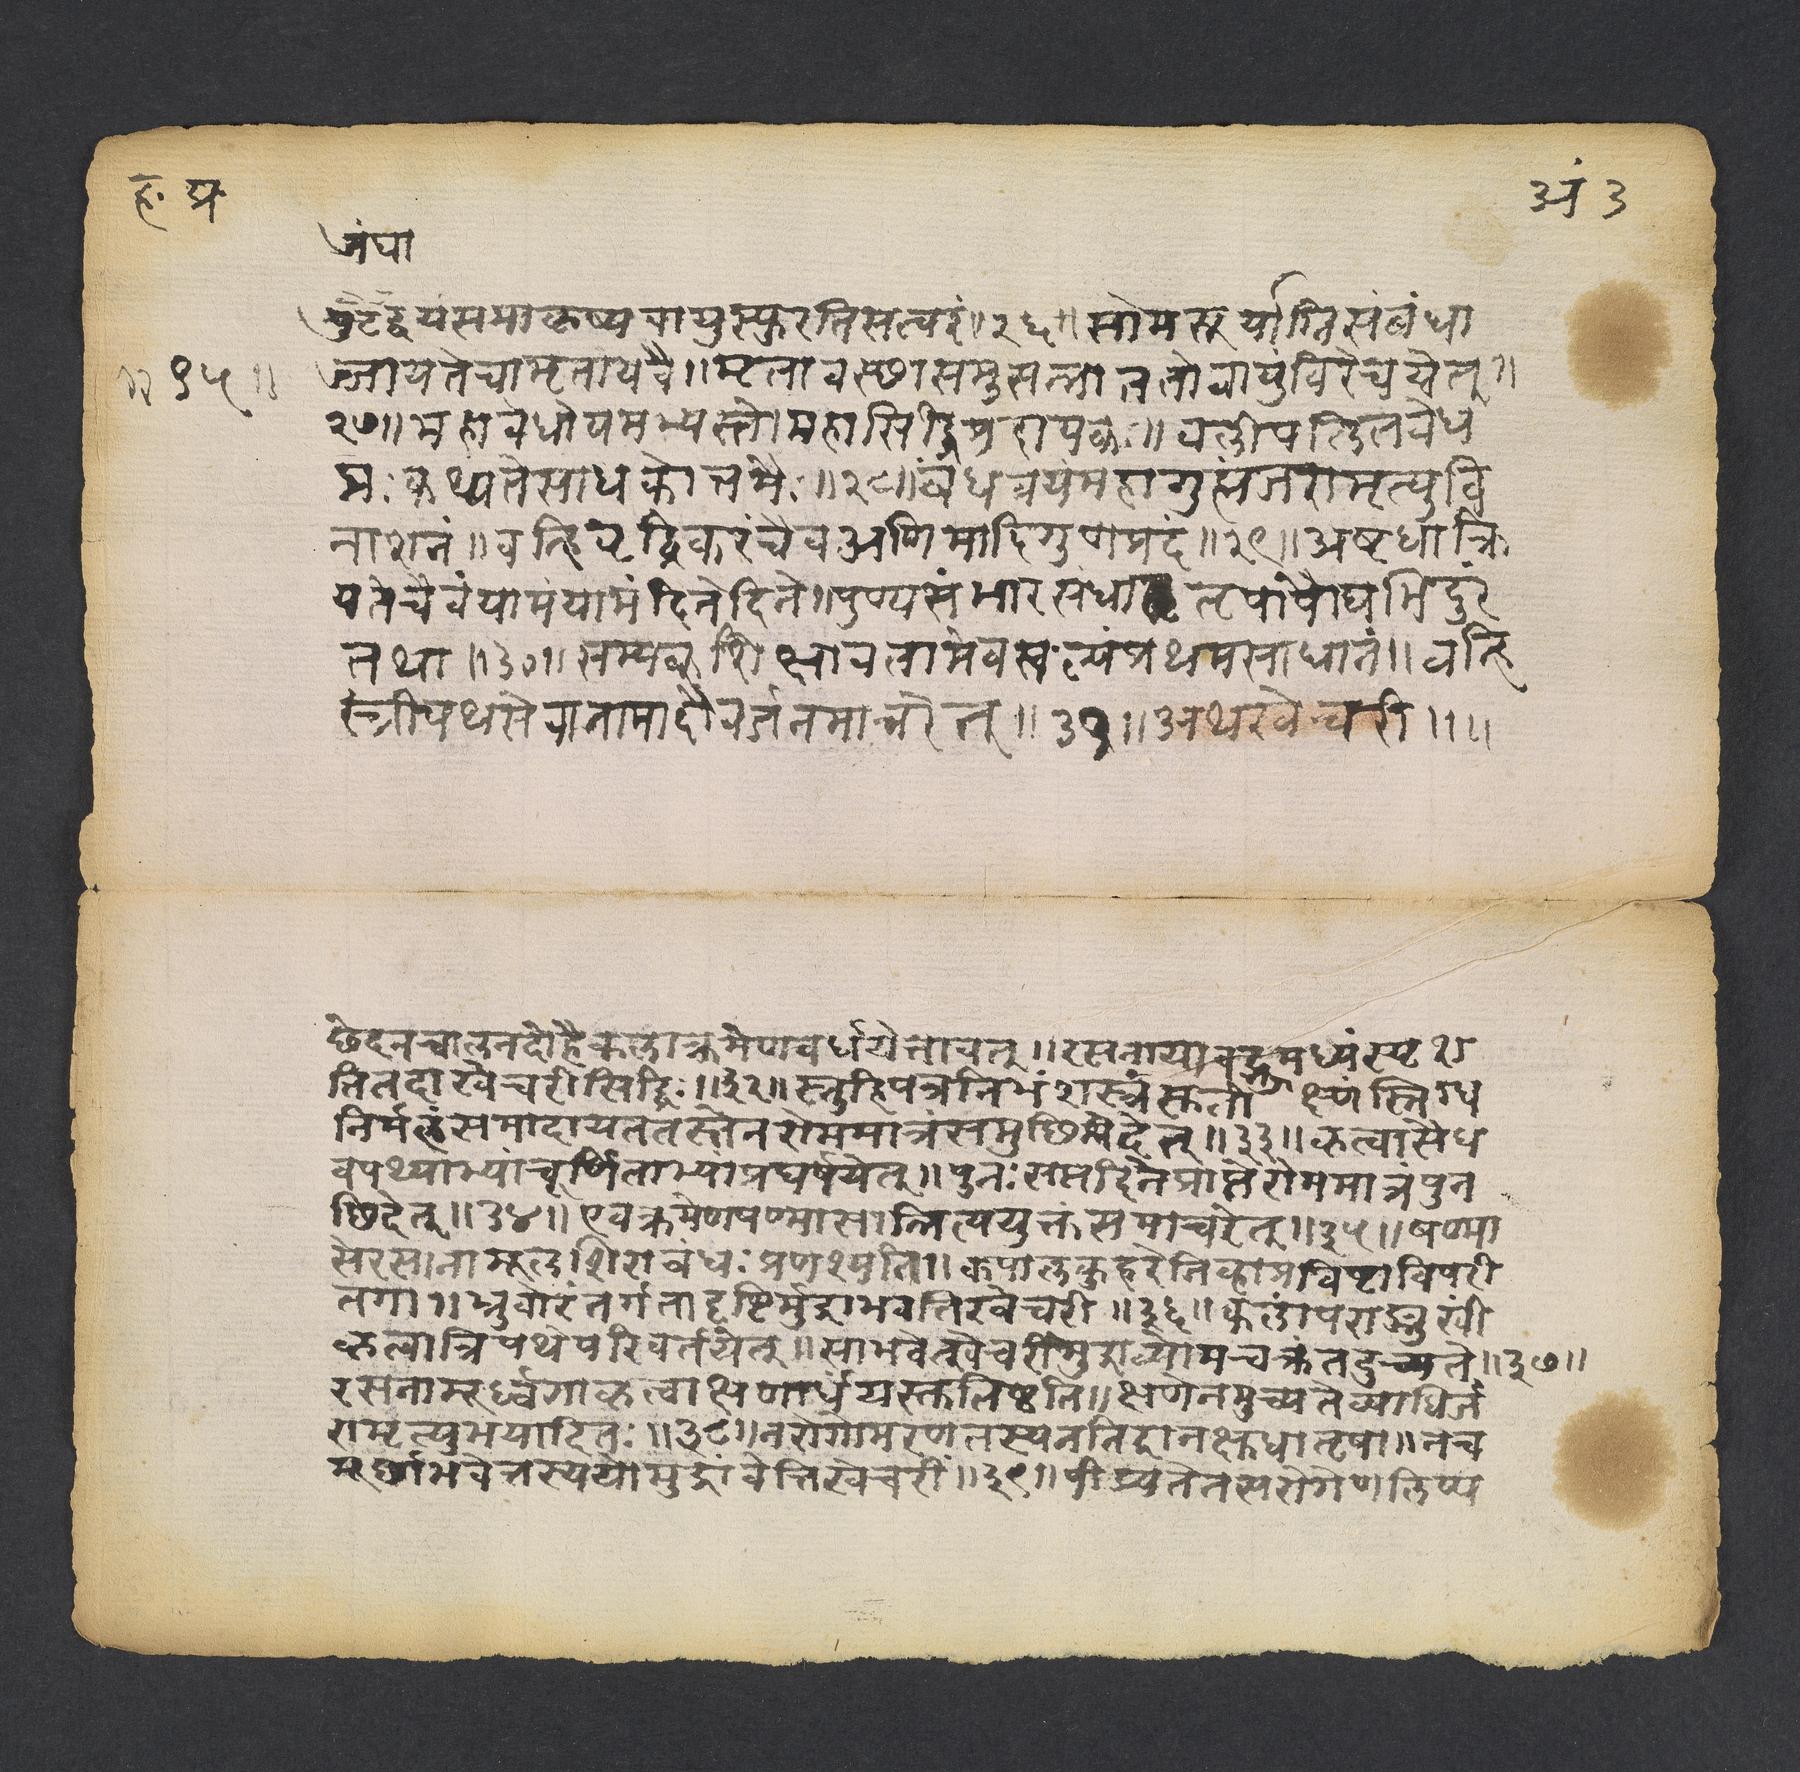 ह. प्र.
अं ३
जंघा
पुटद्वयंसमाकृष्यवायुस्फुरतिसत्वरं॥२६॥सोमसूर्याग्निसंबंधा
॥१५॥
ज्जायतेचामृतायवै॥मृतावस्छासमुत्सन्नाततोवायुंविरेचयेत्॥
२७॥महावेधोयमभ्यस्तोमहासिद्धिप्रदायकः॥वलीपलितवेध
घ्नःकथ्यतेसाधकोत्तमैः॥२८॥बंधत्रयंमहागुह्यंजरामृत्युवि
नाशनं॥वह्निवृद्धिकरंचैवअणिमादिगुणप्रदं॥२९॥अष्टधाक्रि
यतेचैवंयामंयामंदिनेदिने॥पुण्यसंभारसंधातृपापौघभिदुरं
तथा॥३०॥सम्यक्शिक्षावतामेवस्वल्पंप्रथमसाधानं॥वह्नि
स्त्रीपथसेवानामादौवर्जनमाचरेत्॥३१॥अथखेचरी॥॥
छेदनचालनदोहैकलाक्रमेणवर्धयेत्तावत्॥रसनायावद्भ्रूमध्यंस्पृश
तितदाखेचरीसिद्धिः॥३२॥स्नुहिपत्रनिभंशस्त्रंसुतीक्ष्णंस्निग्ध
निर्मलंसमादायततस्तेनरोममात्रंसमुछिदेत्॥३३॥कृत्वासैंध
वपथ्याभ्यांचूर्णिताभ्यांप्रघर्षयेत्॥पुनःसप्तदिनेप्राप्तेरोममात्रंपुन
छिदेत्॥३४॥एवक्रमेणषण्मासान्नित्ययुक्तसमाचरेत्॥३५॥षण्मा
सेरसनामूलशिराबंधःप्रणश्यति॥कपालकुहरेजिव्हाप्रविष्टाविपरी
तगा॥भ्रुवोरंतर्गतादृष्टिर्मुद्राभवतिखेचरी॥३६॥कलांपराङ्मुखीं
कृत्वात्रिपथेपरिवर्तयेत्॥साभवेत्खेचरीमुद्राव्योमचक्रंतदुच्यते॥३७॥
रसनामूर्ध्वगाकृत्वाक्षणार्धंयस्तुतिष्ठति॥क्षणेनमुच्यतेव्याधिर्ज
रामृत्युभयादितः॥३८॥नरोगोमरणंतस्यननिद्रानक्षुधातृषा॥नच
मूर्छाभवेत्तस्ययोमुद्रांवेत्तिखेचरीं॥३९॥पीड्यतेनसरोगेणलिप्य